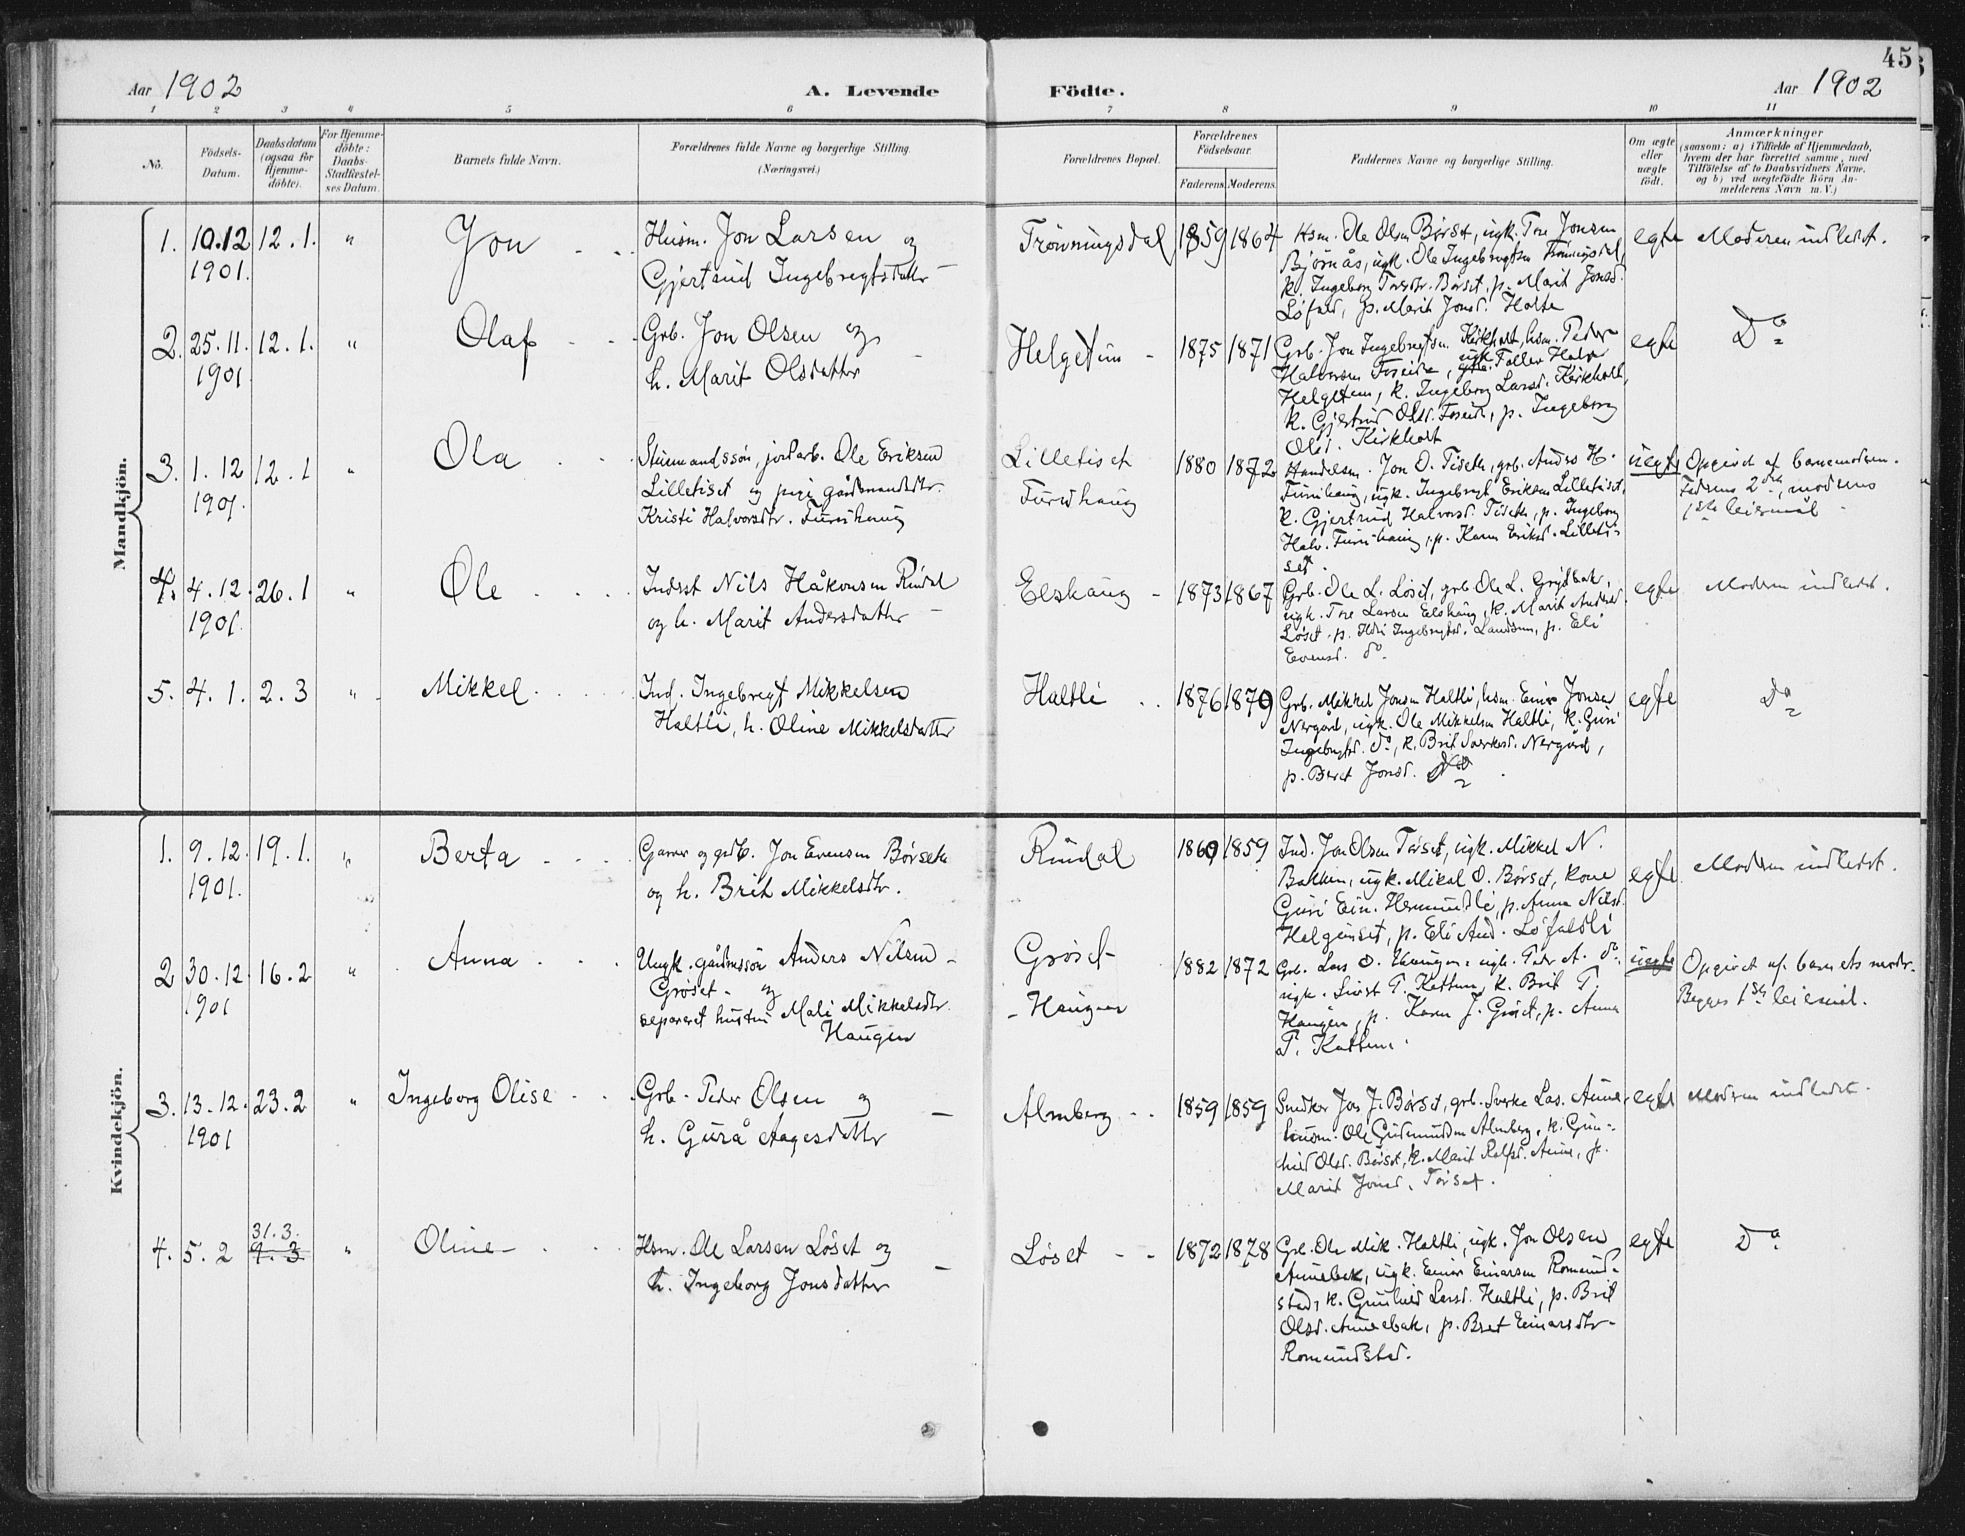 45
Aar 1902
A. Levende
Födte.
Aar 1902
1 2 3 4 5 6 7 8 9 10 11
Nö.
Födsels-
Datum.
Daabsdatum
(ogsaa for
Hjemme-
döbte).
For Hjemme-
döbte:
Daabs-
Stadfæstel-
ses Datum.
Barnets fulde Navn.
Forældrenes fulde Navne og borgerlige Stilling.
(Næringsvei.)
Forældrenes Bopæl.
Forældrenes
Födselsaar.
Faderens.
Moderens.
Faddernes Navne og borgerlige Stilling.
Om ægte
eller
uægte
födt.
Anmærkninger
(saasom: a) i Tilfælde af Hjemmedaab,
hvem der har forrettet samme, med
Tilföielse af to Daabsvidners Navne,
og b) ved uægtefödte Börn An-
melderens Navn m. V.)
Mandkjön.
1. 10.12 12.1. " Jon
1901.
Husm. Jon Larsen og
Gjertrud Ingebregtsdatter
Trønningsdal 1859 1864
Hsm. Ole Olsen Børset, ugk. Tore Jonsen
Bjørnås, ugk. Ole Ingebregtsen Trønningsdal,
k. Ingeborg Toresdtr. Børset, p. Marit Jonsd.
Løfald, p. Marit Jonsd. Holte
egte Moderen indledet.
2. 25.11. 12.1. " Olaf
1901.
Grb. Jon Olsen og
h. Marit Olsdatter
Helgetun 1875 1871
Grb. Jon Ingebregtsen Kirkholt, hsm. Peder
Halvorsen Foseide, ugk. Halvor
Helgetun, k. Ingeborg Larsd. Kirkholt,
k. Gjertrud Olsd. Foseide, p. Ingeborg
Olsd. Kirkholt
egte Do
3. 1.12 12.1 " Ola
1901.
Stuemandssøn, jordarb. Ole Eriksen
Lilletiset og pige gårdmandsdtr.
Kristi Halvorsdtr. Furuhaug
Lilletiset
Furuhaug
1880 1872
Handelsm. Jon O. Tiseth, grb. Anders H.
Furuhaug, ugk. Ingebregt Eriksen Lilletiset,
k. Gjertrud Halvorsd. Tiseth, p. Ingeborg
Halv. Furuhaug, p. Karen Eriksd. Lilleti-
set.
uegte Opgivet af barnemoderen.
Faderens 2det, moderens
1ste leiermål
4. 4.12. 26.1 " Ole
1901.
Inderst Nils Håkonsen Rindal
og h. Marit Andersdatter
Elshaug 1873 1867
Grb. Ole L. Løset, grb. Ole L. Grytbak,
ugk. Tore Larsen Elshaug, k. Marit Andersd.
Løset, p. Ildri Ingebregtsd. Landsem, p. Eli
Evensd. do.
egte Moderen indledet.
5. 4.1. 2.3 " Mikkel
Ind. Ingebregt Mikkelsen
Haltli, h. Oline Mikkelsdatter
Haltli 1876 1879
Grb. Mikkel Jonsen Haltli, hsm. Einar Jonsen
Nergård, ugk. Ole Mikkelsen Haltli, k. Guri
Ingebregtsd. do, k. Brit Sverkesd. Nergård,
p. Beret Jonsd. do.
egte Do
Kvindekjön.
1. 9.12. 19.1. " Berta
1901.
Garver og grdb. Jon Evensen Børseth
og h. Brit Mikkelsdtr.
Rindal 1860 1859
Ind. Jon Olsen Tørset, ugk. Mikkel N.
Bakken, ugk. Mikal O. Børset, kone
Guri Ein. Hermundli, p. Anna Nilsd.
Helgenset, p. Eli And. Løfaldli
egte Moderen indledet.
2 30.12. 16.2 " Anna
1901
Ungk. gårdmssøn Anders Nilsen
Grøset og
separeret hustru Mali Mikkelsdtr.
Haugen
Grøset
Haugen
1882 1872
Grb. Lars O. Haugen, ugk. Peder A. do,
ugk. Sivert T. Kattum, k. Brit T.
Haugen, p. Karen J. Grøset, p. Anna
T. Kattum.
uegte Opgivet af barnets moder.
Begges 1ste leiermål.
3. 13.12. 23.2 " Ingeborg Olise
1901
Grb. Peder Olsen og
h. Gurå Aagesdatter
Almberg 1859 1859
Snedker Jon J. Børset, grb. Sverke Las. Aune,
husm. Ole Gudmundsen Almberg, k. Gun-
hild Olsd. Børset, k. Marit Rolfsd. Aune, p.
Marit Jonsd. Tørset.
egte Moderen indledet.
4. 5.2 31.3. 9.3 " Oline
Hsm. Ole Larsen Løset og
h. Ingeborg Jonsdatter
Løset 1872 1878
Grb. Ole Mik. Haltli, ugk. Jon Olsen
Aunebak, ugk. Einar Einarsen Romund-
stad, k. Gunhild Larsd. Haltli, p. Brit
Olsd. Aunebak, p. Bret Einarsdtr.
Romundstad.
egte Do